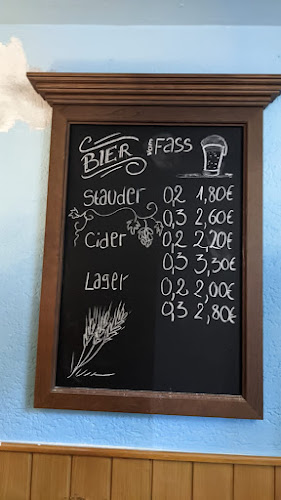 BIER vom FASS
Stauder 0,2 1,80€
0,3 2,60€
Cider 0,2 2,20€
0,3 3,30€
Lager 0,2 2,00€
0,3 2,80€